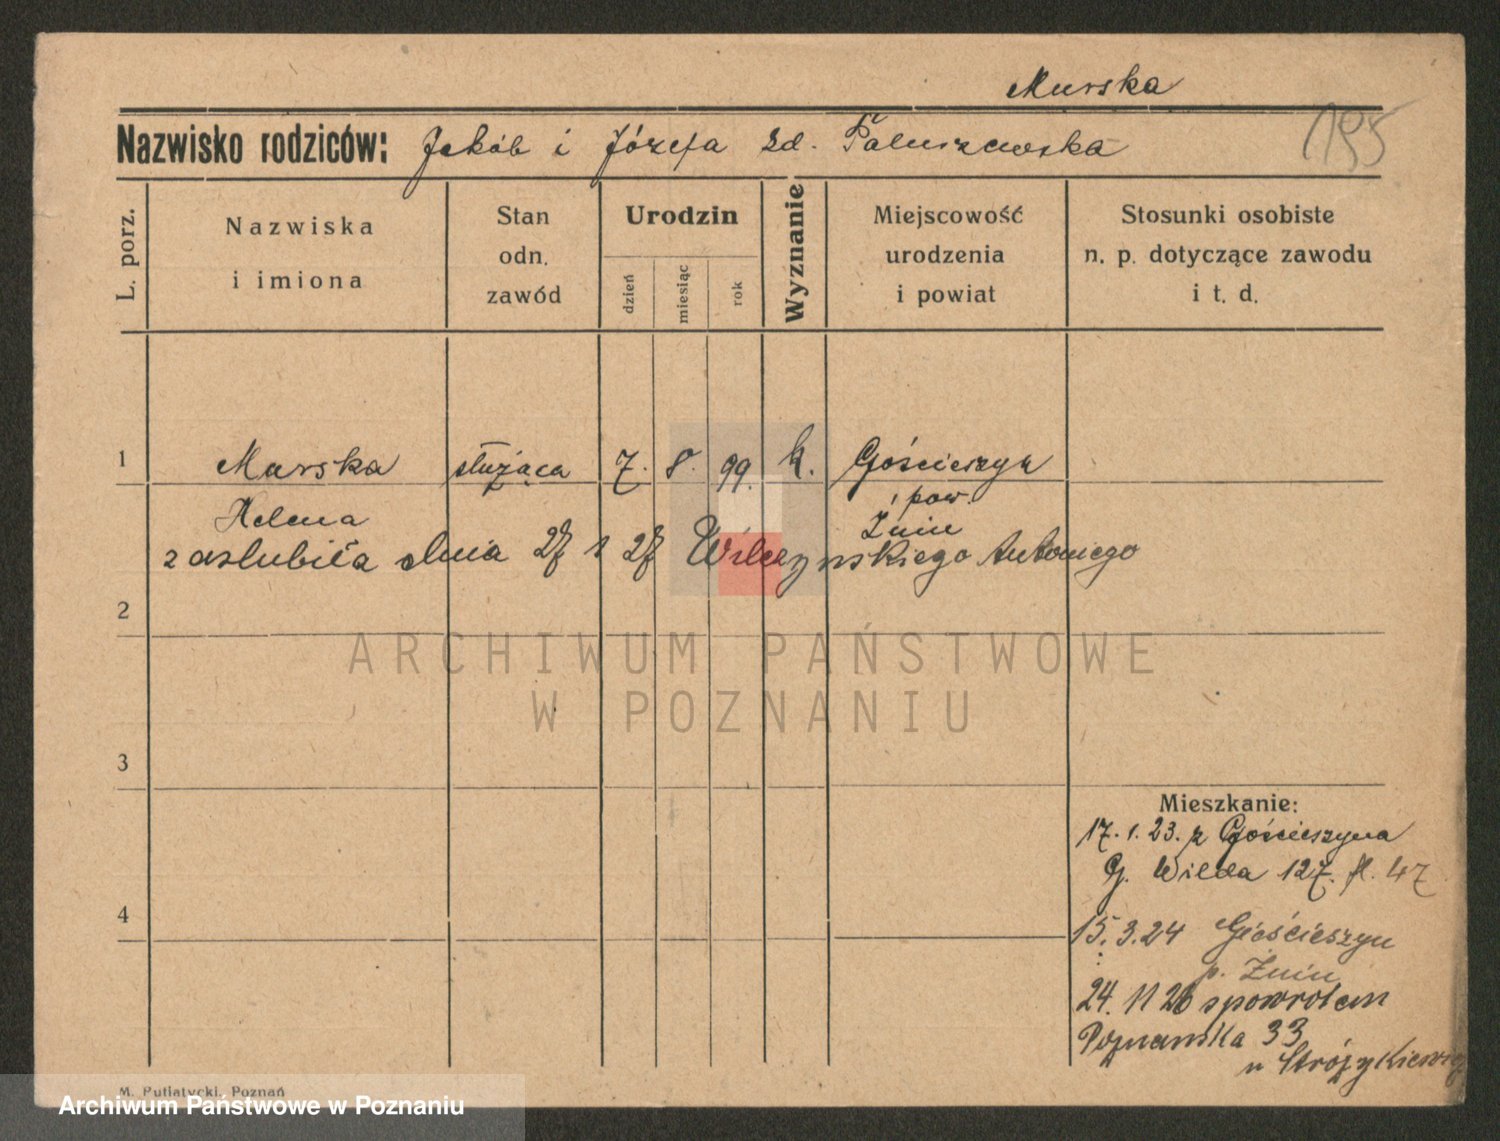 Murska
Nazwisko rodziców: Jakób i Józefa zd. Paluszewska
195
L. porz.
Nazwiska
i imiona
Stan
odn.
zawód
Urodzin
dzień
miesiąc
rok
Wyznanie
Miejscowość
urodzenia
i powiat
Stosunki osobiste
n. p. dotyczące zawodu
i t. d.
1 Murska służąca 7. 8. 99. k. Gościeszyn
Helena pow.
Żnin
zaslubiła dnia 27 1 27 Wilczynskiego Antoniego
2
ARCHIWUM PAŃSTWOWE
W POZNANIU
3
Mieszkanie:
17. 1. 23. z Gościeszyna
G. Wilda 127. fl. 47
4
15. 3. 24 Gościeszyn
p. Żnin
24. 11 26 spowrotem
Poznanska 33
u Stróżykiewicz
M. Putiatycki, Poznań
Archiwum Państwowe w Poznaniu